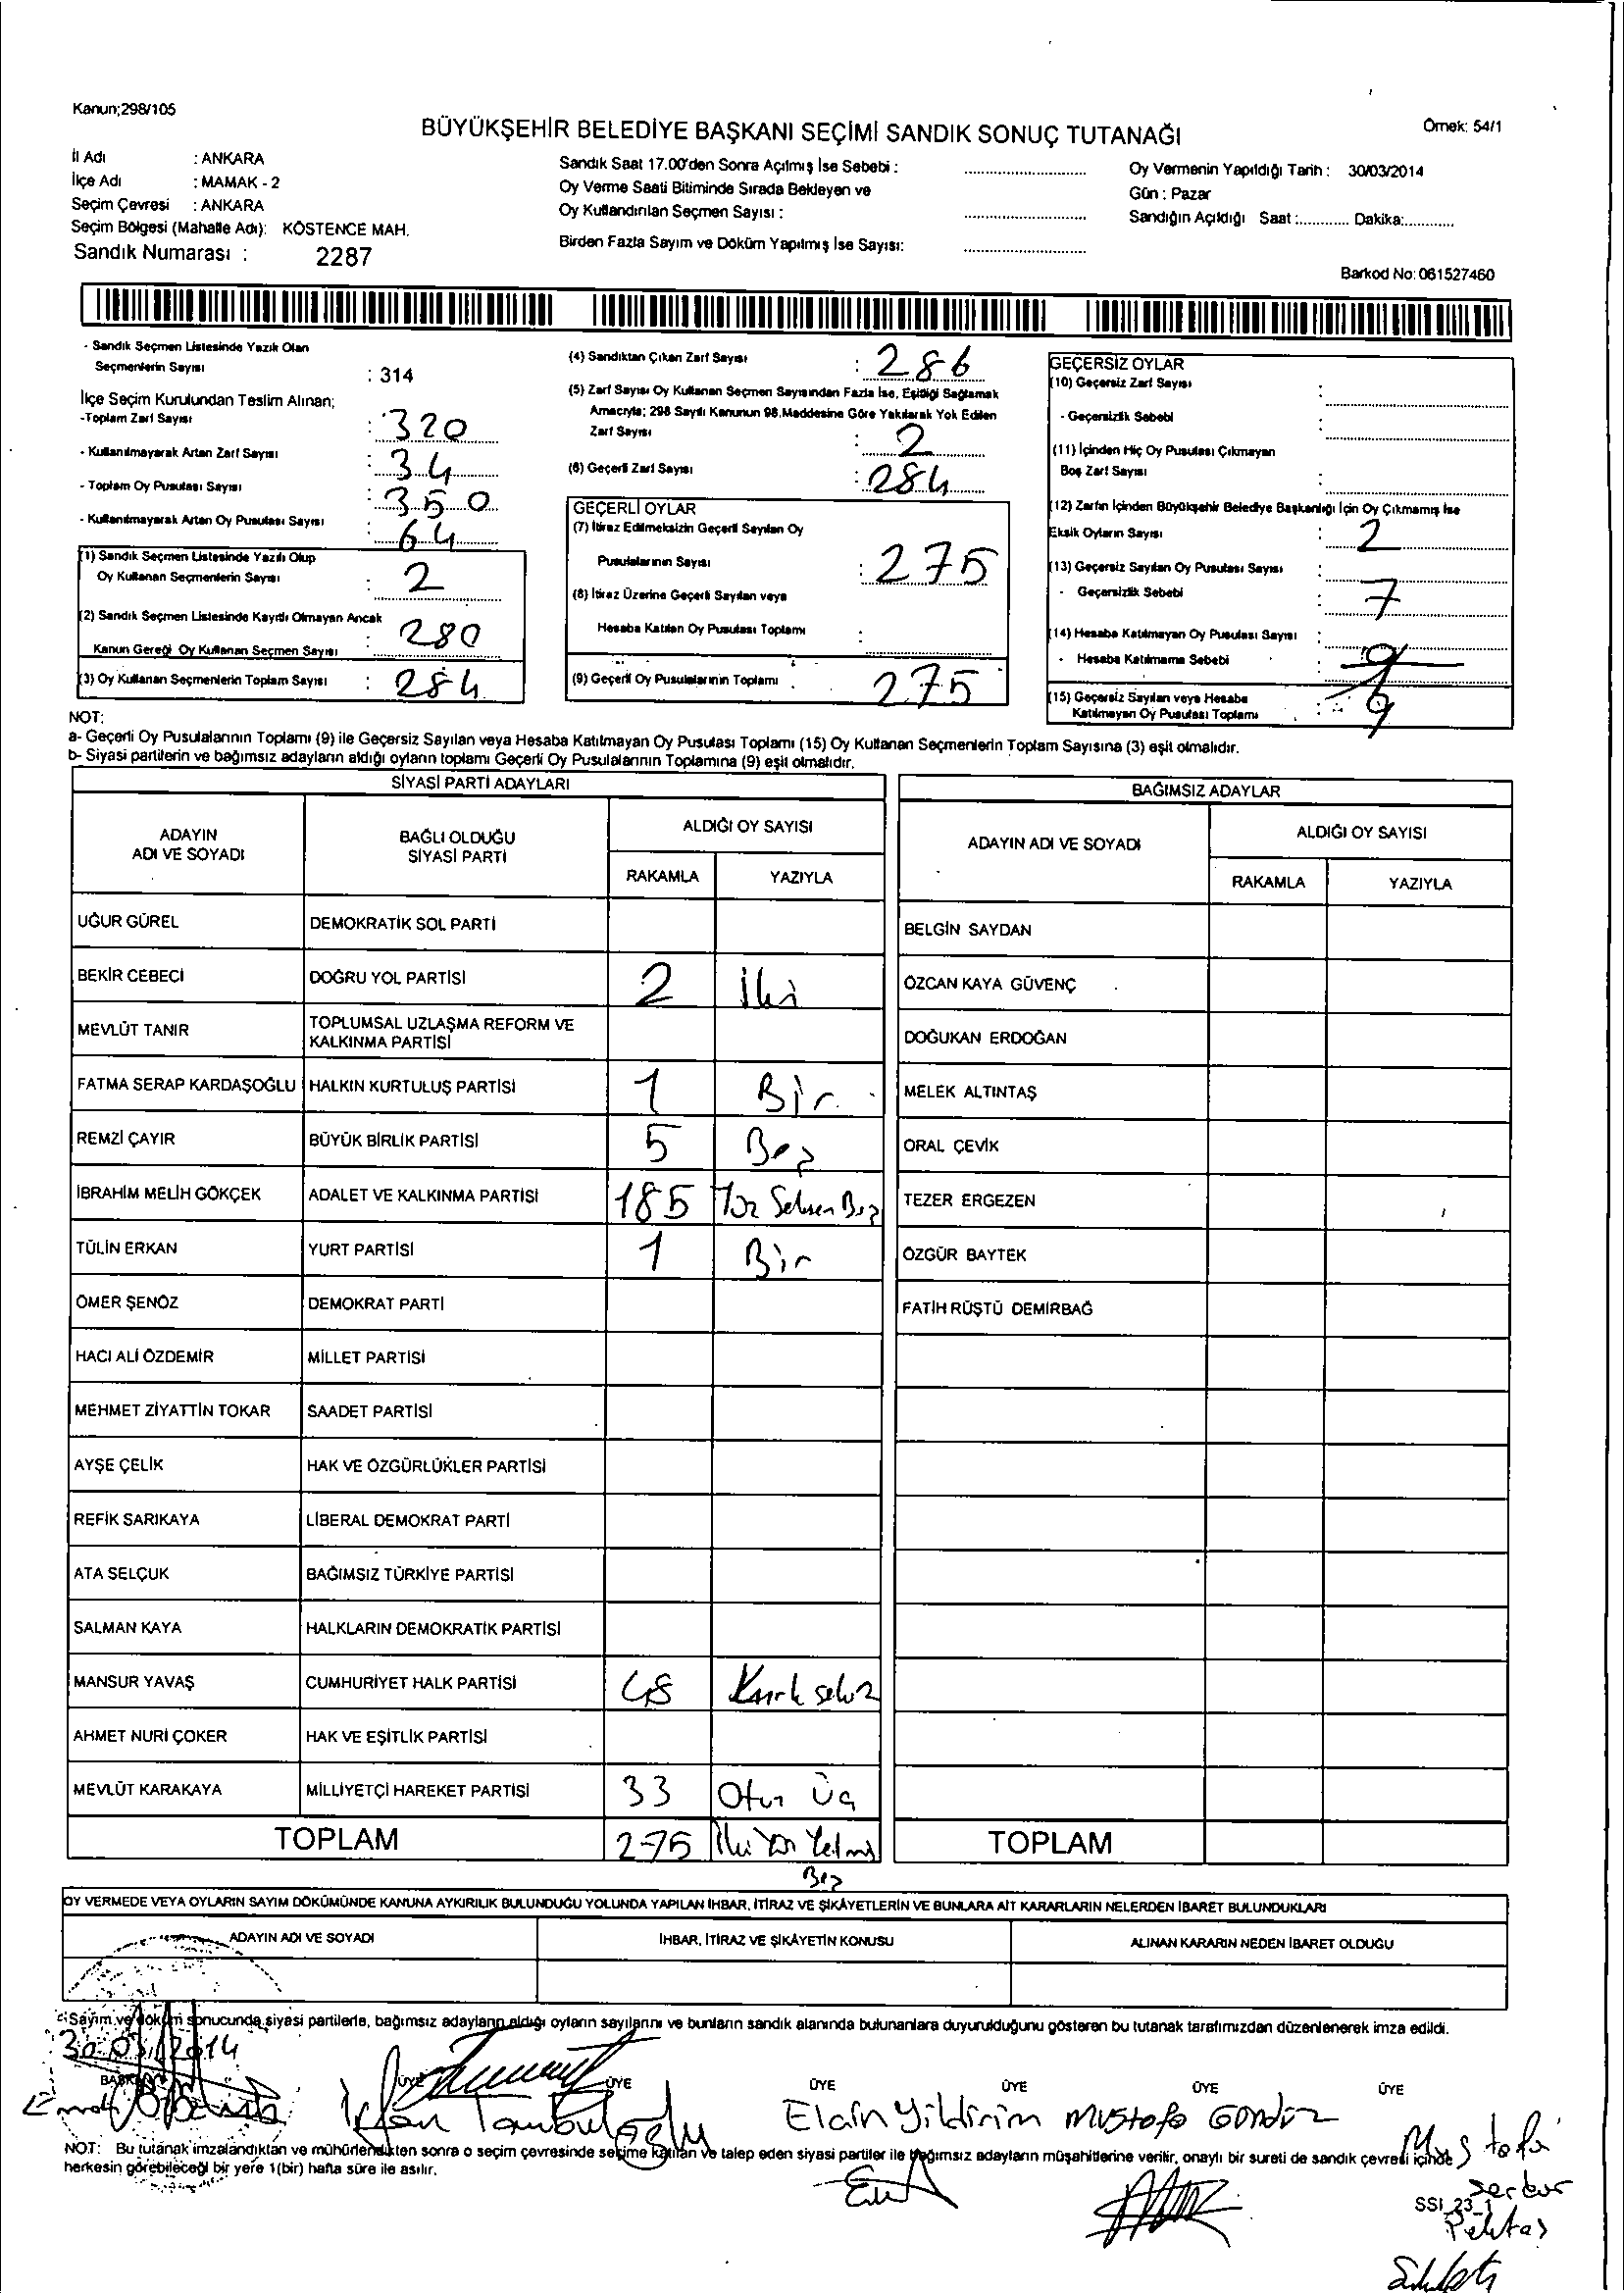 Kanun;298/105
BÜYÜKŞEHİR BELEDİYE BAŞKANI SEÇİMİ SANDIK SONUÇ TUTANAĞI
Örnek: 54/1
İl Adı : ANKARA
İlçe Adı : MAMAK - 2
Seçim Çevresi : ANKARA
Seçim Bölgesi (Mahalle Adı): KÖSTENCE MAH.
Sandık Numarası : 2287
Sandık Saat 17.00'den Sonra Açılmış İse Sebebi :
Oy Verme Saati Bitiminde Sırada Bekleyen ve
Oy Kullandırılan Seçmen Sayısı :
Birden Fazla Sayım ve Döküm Yapılmış İse Sayısı:
Oy Vermenin Yapıldığı Tarih : 30/03/2014
Gün : Pazar
Sandığın Açıldığı Saat :............ Dakika:............
Barkod No: 061527460
- Sandık Seçmen Listesinde Yazılı Olan
Seçmenlerin Sayısı : 314
İlçe Seçim Kurulundan Teslim Alınan;
-Toplam Zarf Sayısı : 320
- Kullanılmayarak Artan Zarf Sayısı : 34
- Toplam Oy Pusulası Sayısı : 350
- Kullanılmayarak Artan Oy Pusulası Sayısı : 64
(1) Sandık Seçmen Listesinde Yazılı Olup
Oy Kullanan Seçmenlerin Sayısı : 2
(2) Sandık Seçmen Listesinde Kayıtlı Olmayan Ancak
Kanun Gereği Oy Kullanan Seçmen Sayısı : 280
(3) Oy Kullanan Seçmenlerin Toplam Sayısı : 284
(4) Sandıktan Çıkan Zarf Sayısı : 286
(5) Zarf Sayısı Oy Kullanan Seçmen Sayısından Fazla İse, Eşitliği Sağlamak
Amacıyla; 298 Sayılı Kanunun 98.Maddesine Göre Yakılarak Yok Edilen
Zarf Sayısı : 2
(6) Geçerli Zarf Sayısı : 284
GEÇERLİ OYLAR
(7) İtiraz Edilmeksizin Geçerli Sayılan Oy
Pusulalarının Sayısı : 275
(8) İtiraz Üzerine Geçerli Sayılan veya
Hesaba Katılan Oy Pusulası Toplamı :
(9) Geçerli Oy Pusulalarının Toplamı : 275
GEÇERSİZ OYLAR
(10) Geçersiz Zarf Sayısı :
- Geçersizlik Sebebi :
(11) İçinden Hiç Oy Pusulası Çıkmayan
Boş Zarf Sayısı :
(12) Zarfın İçinden Büyükşehir Belediye Başkanlığı İçin Oy Çıkmamış İse
Eksik Oyların Sayısı : 2
(13) Geçersiz Sayılan Oy Pusulası Sayısı :
- Geçersizlik Sebebi : 7
(14) Hesaba Katılmayan Oy Pusulası Sayısı :
- Hesaba Katılmama Sebebi : 9
(15) Geçersiz Sayılan veya Hesaba
Katılmayan Oy Pusulası Toplamı : 9
NOT:
a- Geçerli Oy Pusulalarının Toplamı (9) ile Geçersiz Sayılan veya Hesaba Katılmayan Oy Pusulası Toplamı (15) Oy Kullanan Seçmenlerin Toplam Sayısına (3) eşit olmalıdır.
b- Siyasi partilerin ve bağımsız adayların aldığı oyların toplamı Geçerli Oy Pusulalarının Toplamına (9) eşit olmalıdır.
SİYASİ PARTİ ADAYLARI
ADAYIN ADI VE SOYADI
BAĞLI OLDUĞU SİYASİ PARTİ
ALDIĞI OY SAYISI
RAKAMLA YAZIYLA
UĞUR GÜREL DEMOKRATİK SOL PARTİ
BEKİR CEBECİ DOĞRU YOL PARTİSİ 2 İki
MEVLÜT TANIR TOPLUMSAL UZLAŞMA REFORM VE
KALKINMA PARTİSİ
FATMA SERAP KARDAŞOĞLU HALKIN KURTULUŞ PARTİSİ 1 Bir
REMZİ ÇAYIR BÜYÜK BİRLİK PARTİSİ 5 Beş
İBRAHİM MELİH GÖKÇEK ADALET VE KALKINMA PARTİSİ 185 Yüz Seksen Beş
TÜLİN ERKAN YURT PARTİSİ 1 Bir
ÖMER ŞENÖZ DEMOKRAT PARTİ
HACI ALİ ÖZDEMİR MİLLET PARTİSİ
MEHMET ZİYATTİN TOKAR SAADET PARTİSİ
AYŞE ÇELİK HAK VE ÖZGÜRLÜKLER PARTİSİ
REFİK SARIKAYA LİBERAL DEMOKRAT PARTİ
ATA SELÇUK BAĞIMSIZ TÜRKİYE PARTİSİ
SALMAN KAYA HALKLARIN DEMOKRATİK PARTİSİ
MANSUR YAVAŞ CUMHURİYET HALK PARTİSİ 48 Kırk sekiz
AHMET NURİ ÇOKER HAK VE EŞİTLİK PARTİSİ
MEVLÜT KARAKAYA MİLLİYETÇİ HAREKET PARTİSİ 33 Otuz Üç
TOPLAM 275 İki Yüz Yetmiş
Beş
BAĞIMSIZ ADAYLAR
ADAYIN ADI VE SOYADI
ALDIĞI OY SAYISI
RAKAMLA YAZIYLA
BELGİN SAYDAN
ÖZCAN KAYA GÜVENÇ
DOĞUKAN ERDOĞAN
MELEK ALTINTAŞ
ORAL ÇEVİK
TEZER ERGEZEN
ÖZGÜR BAYTEK
FATİH RÜŞTÜ DEMİRBAĞ
TOPLAM
OY VERMEDE VEYA OYLARIN SAYIM DÖKÜMÜNDE KANUNA AYKIRILIK BULUNDUĞU YOLUNDA YAPILAN İHBAR, İTİRAZ VE ŞİKÂYETLERİN VE BUNLARA AİT KARARLARIN NELERDEN İBARET BULUNDUKLARI
ADAYIN ADI VE SOYADI İHBAR, İTİRAZ VE ŞİKÂYETİN KONUSU ALINAN KARARIN NEDEN İBARET OLDUĞU
Sayım ve döküm sonucunda siyasi partilerle, bağımsız adayların aldığı oyların sayılarını ve bunların sandık alanında bulunanlara duyurulduğunu gösteren bu tutanak tarafımızdan düzenlenerek imza edildi.
30.03.2014
BAŞKAN ÜYE ÜYE ÜYE ÜYE ÜYE ÜYE
İrfan Tambuloğlu Elçin Yıldırım Mustafa Gündüz
Mustafa
Serkur
Pektaş
NOT: Bu tutanak imzalandıktan ve mühürlendikten sonra o seçim çevresinde seçime katılan ve talep eden siyasi partiler ile bağımsız adayların müşahitlerine verilir, onaylı bir sureti de sandık çevresi içinde
herkesin görebileceği bir yere 1(bir) hafta süre ile asılır.
SSI_23_1